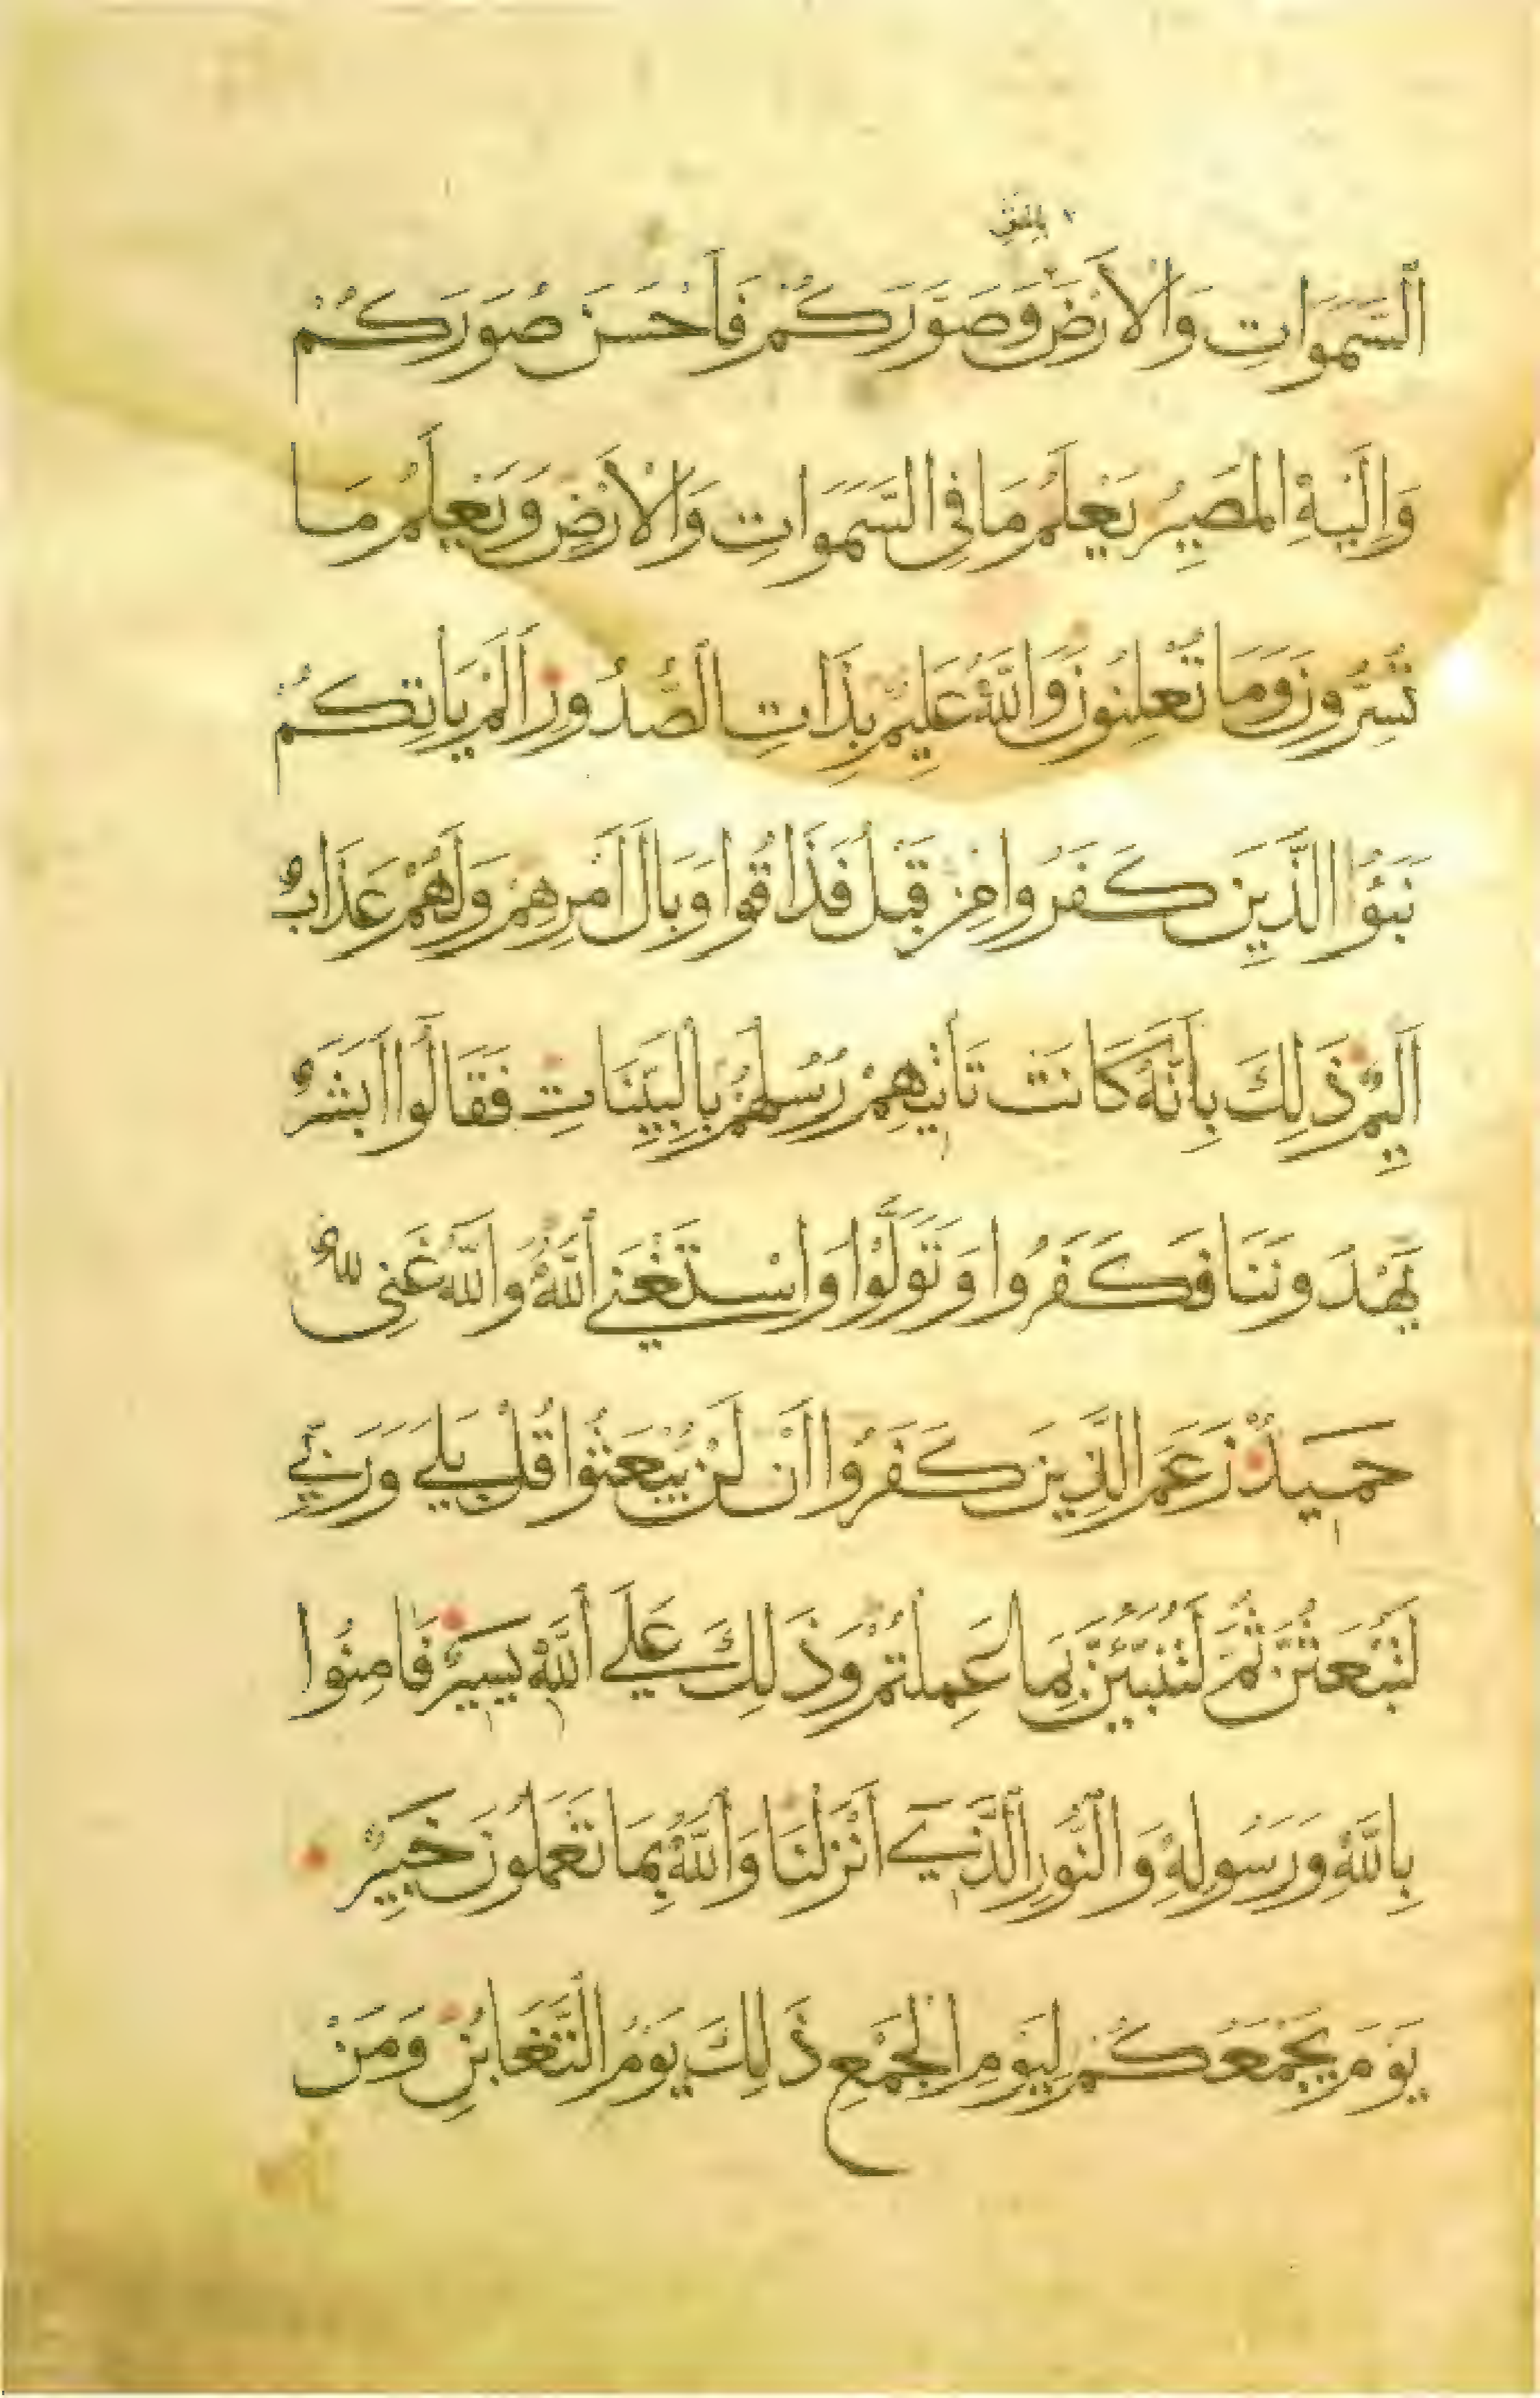 بالحق
السَّمَوَاتِ وَالْأَرْضَ وَصَوَّرَكُمْ فَأَحْسَنَ صُوَرَكُمْ
وَإِلَيْهِ الْمَصِيرُ يَعْلَمُ مَا فِي السَّمَوَاتِ وَالْأَرْضِ وَيَعْلَمُ مَا
تُسِرُّونَ وَمَا تُعْلِنُونَ وَاللَّهُ عَلِيمٌ بِذَاتِ الصُّدُورِ أَلَمْ يَأْتِكُمْ
نَبَؤُا الَّذِينَ كَفَرُوا مِنْ قَبْلُ فَذَاقُوا وَبَالَ أَمْرِهِمْ وَلَهُمْ عَذَابٌ
أَلِيمٌ ذَلِكَ بِأَنَّهُ كَانَتْ تَأْتِيهِمْ رُسُلُهُمْ بِالْبَيِّنَاتِ فَقَالُوا أَبَشَرٌ
يَهْدُونَنَا فَكَفَرُوا وَتَوَلَّوْا وَاسْتَغْنَى اللَّهُ وَاللَّهُ غَنِيٌّ
حَمِيدٌ زَعَمَ الَّذِينَ كَفَرُوا أَنْ لَنْ يُبْعَثُوا قُلْ بَلَى وَرَبِّي
لَتُبْعَثُنَّ ثُمَّ لَتُنَبَّؤُنَّ بِمَا عَمِلْتُمْ وَذَلِكَ عَلَى اللَّهِ يَسِيرٌ فَآمِنُوا
بِاللَّهِ وَرَسُولِهِ وَالنُّورِ الَّذِي أَنْزَلْنَا وَاللَّهُ بِمَا تَعْمَلُونَ خَبِيرٌ
يَوْمَ يَجْمَعُكُمْ لِيَوْمِ الْجَمْعِ ذَلِكَ يَوْمُ التَّغَابُنِ وَمَنْ